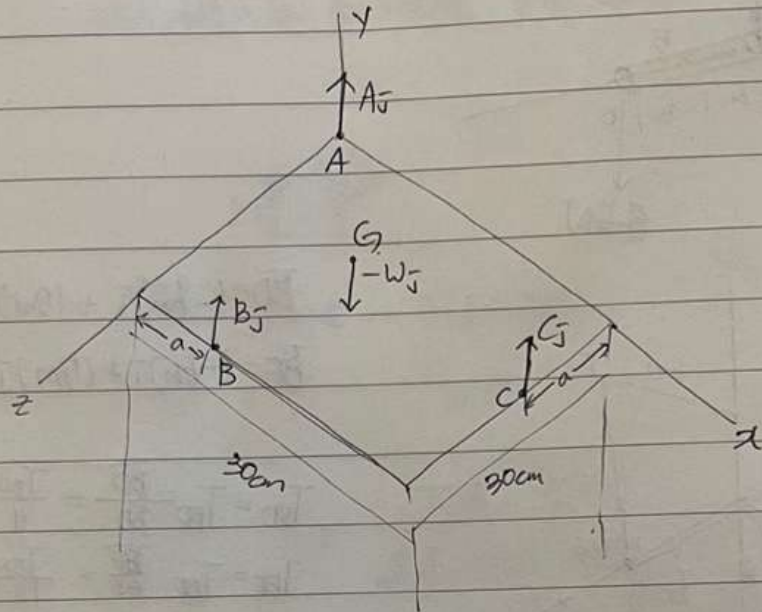 Y
Aj
A
G
-Wj
Bj
a
B
Cj
a
C
z
x
30cm
30cm